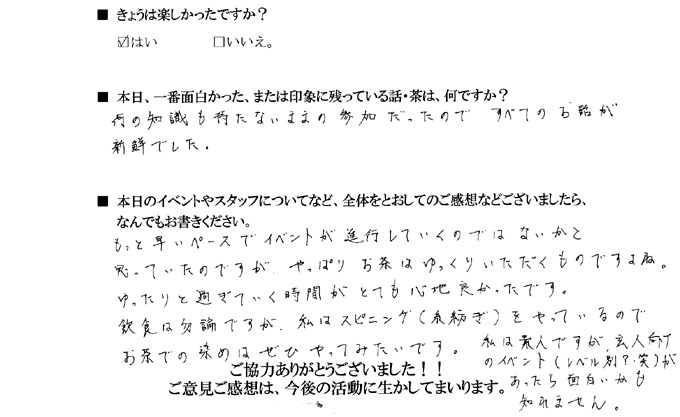 ■ きょうは楽しかったですか？
☑はい　□いいえ。
■ 本日、一番面白かった、または印象に残っている話・茶は、何ですか？
何の知識も持たないままの参加だったので すべてのお話が
新鮮でした。
■ 本日のイベントやスタッフについてなど、全体をとおしてのご感想などございましたら、
なんでもお書きください。
もっと早いペースでイベントが進行していくのではないかと
思っていたのですが、やっぱりお茶はゆっくりいただくものですよね。
ゆったりと過ぎていく時間がとても心地良かったです。
飲食は勿論ですが、私はスピニング（糸紡ぎ）をやっているので
お茶での染めはぜひやってみたいです。
私は素人ですが、玄人向け
のイベント（レベル別？・笑）が
あったら面白いかも
知れません。
ご協力ありがとうございました！！
ご意見ご感想は、今後の活動に生かしてまいります。